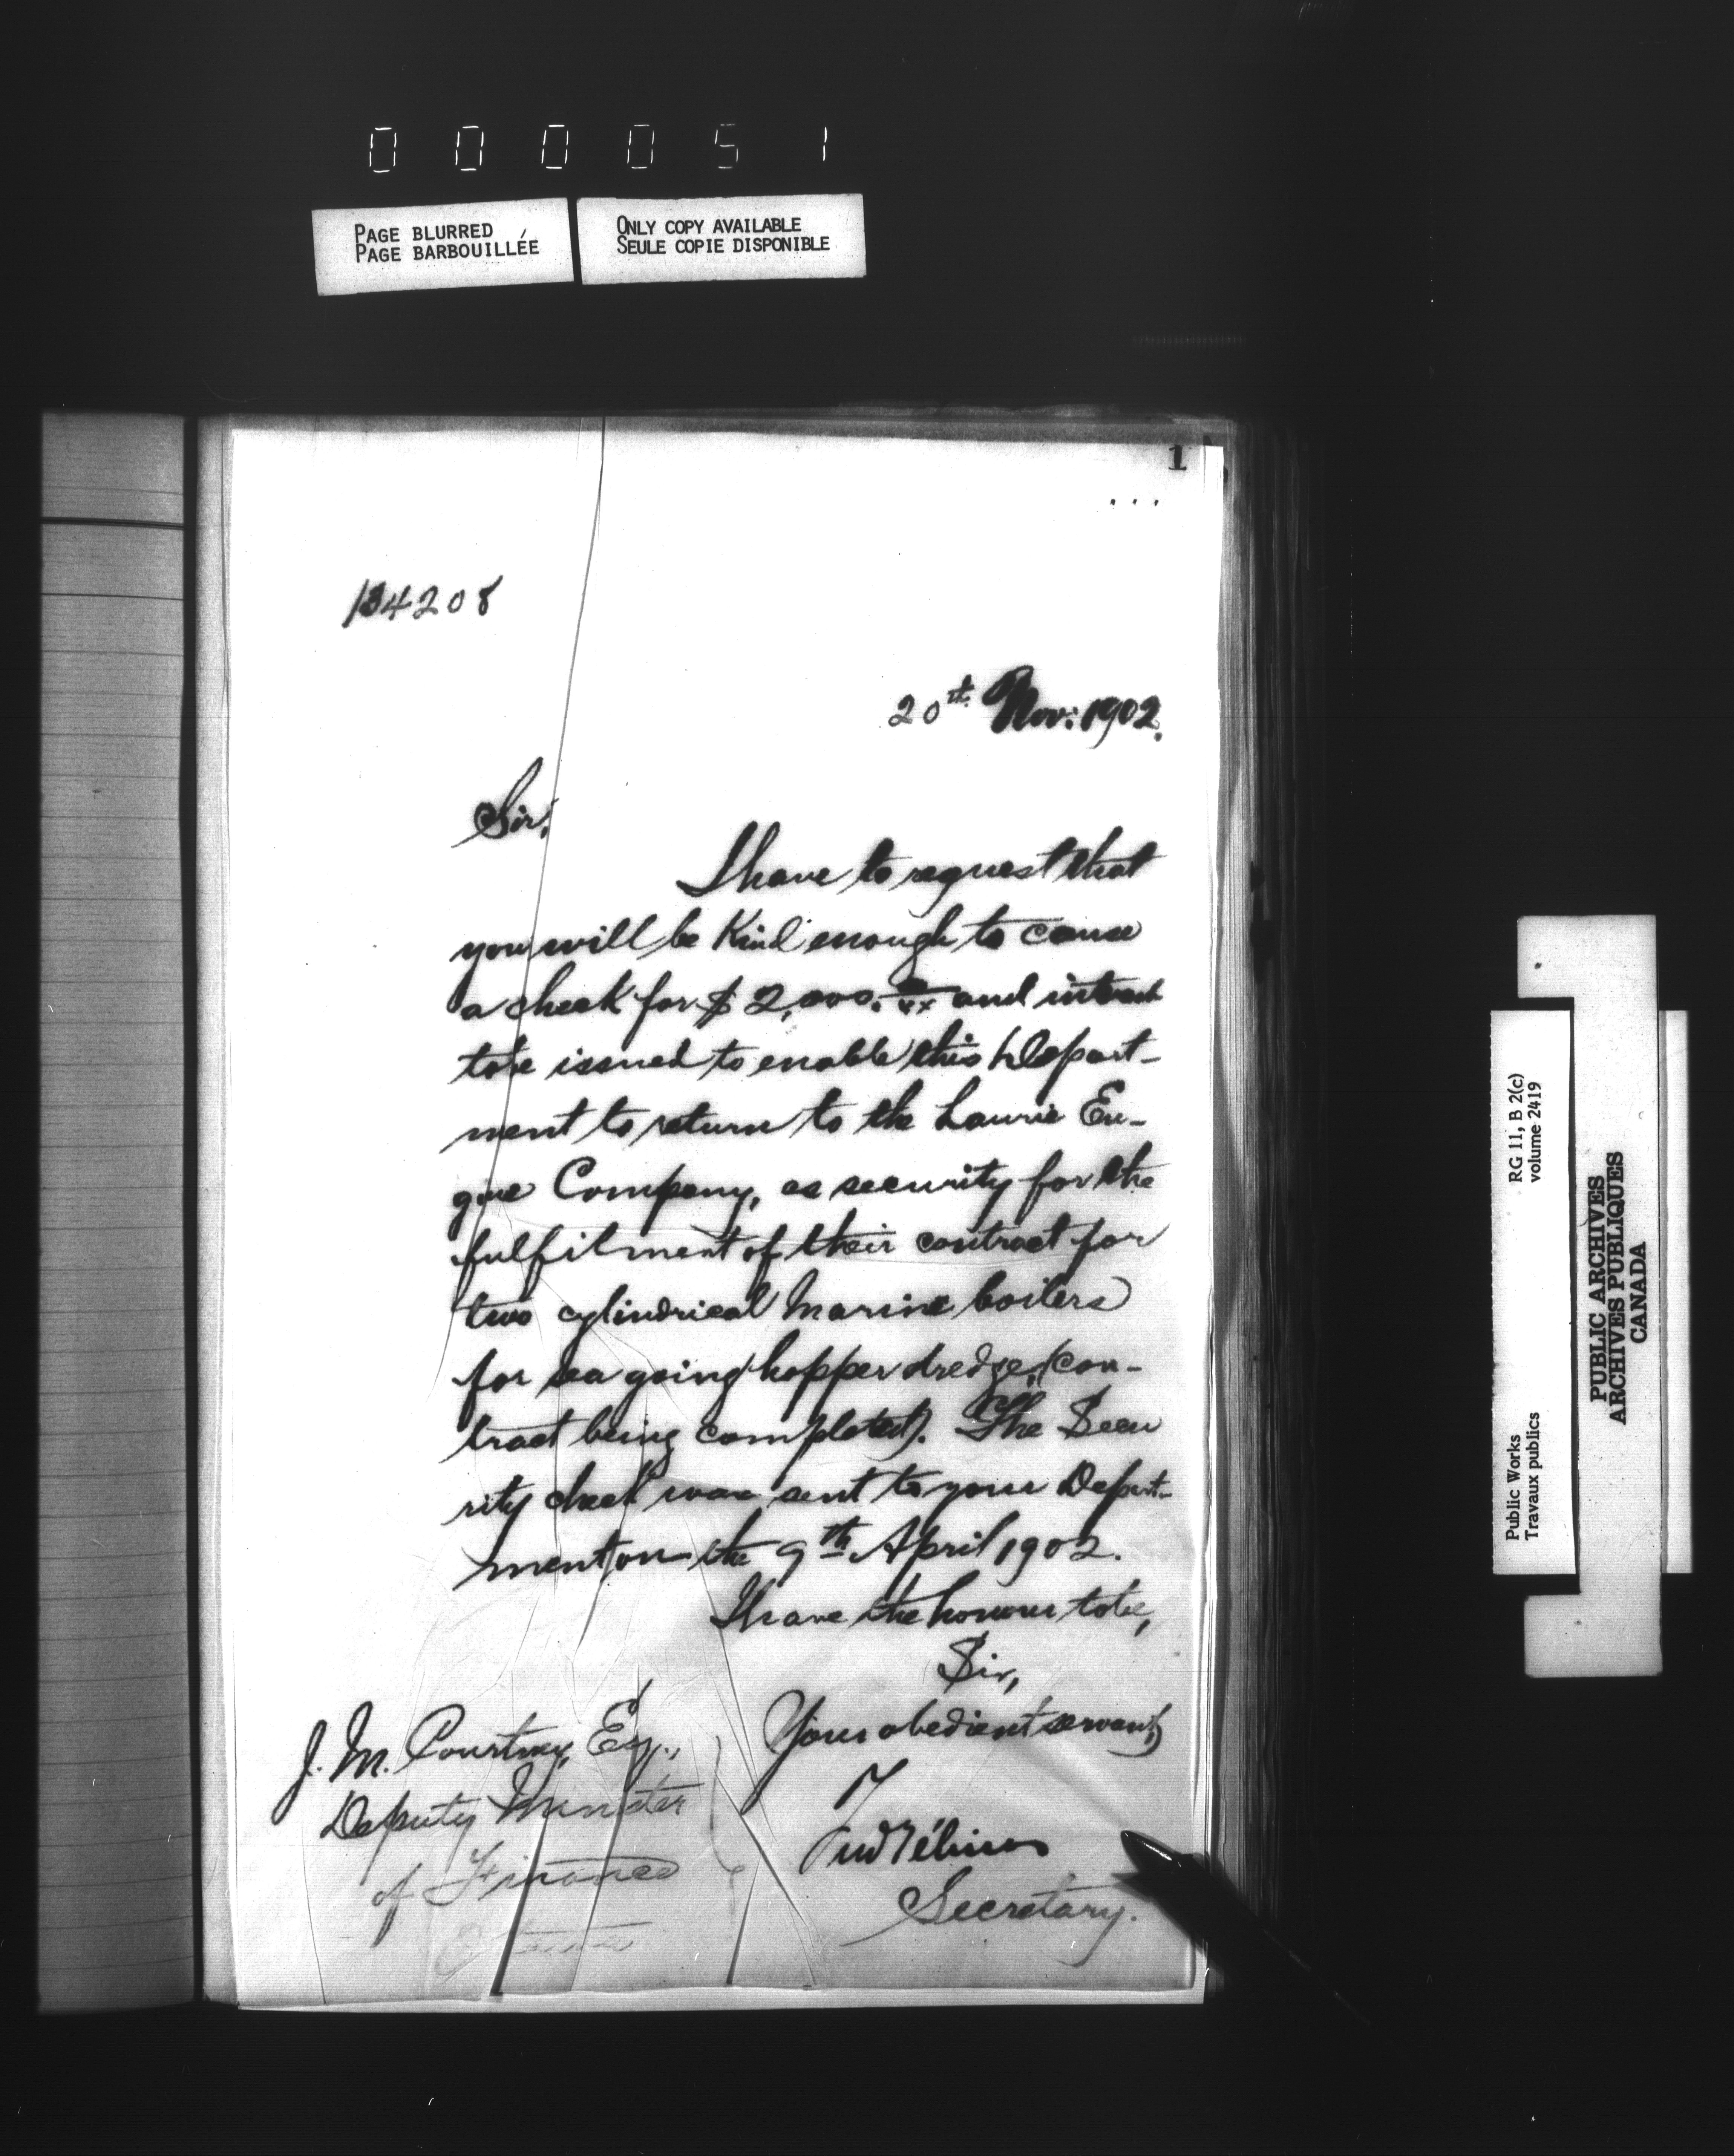 000051
PAGE BLURRED
PAGE BARBOUILLÉE
ONLY COPY AVAILABLE
SEULE COPIE DISPONIBLE
1
134208
20th Nov: 1902.
Sir,
I have to request that
you will be kind enough to cause
a check for $2,000. 00/xx and interest
to be issued to enable this Depart-
ment to return to the Laurie En-
gine Company, as security for the
fulfilment of their contract for
two cylindrical Marine boilers
for sea going hopper dredge, (con-
tract being completed). The Secu
rity check was sent to your Depart-
ment on the 9th April 1902.
I have the honour to be,
Sir,
Your obedient servant,
J. M. Courtney, Esq.,
Deputy Minister
of Finance
Ottawa
Secretary.
RG 11, B 2(c)
volume 2419
Public Works
Travaux publics
PUBLIC ARCHIVES
ARCHIVES PUBLIQUES
CANADA